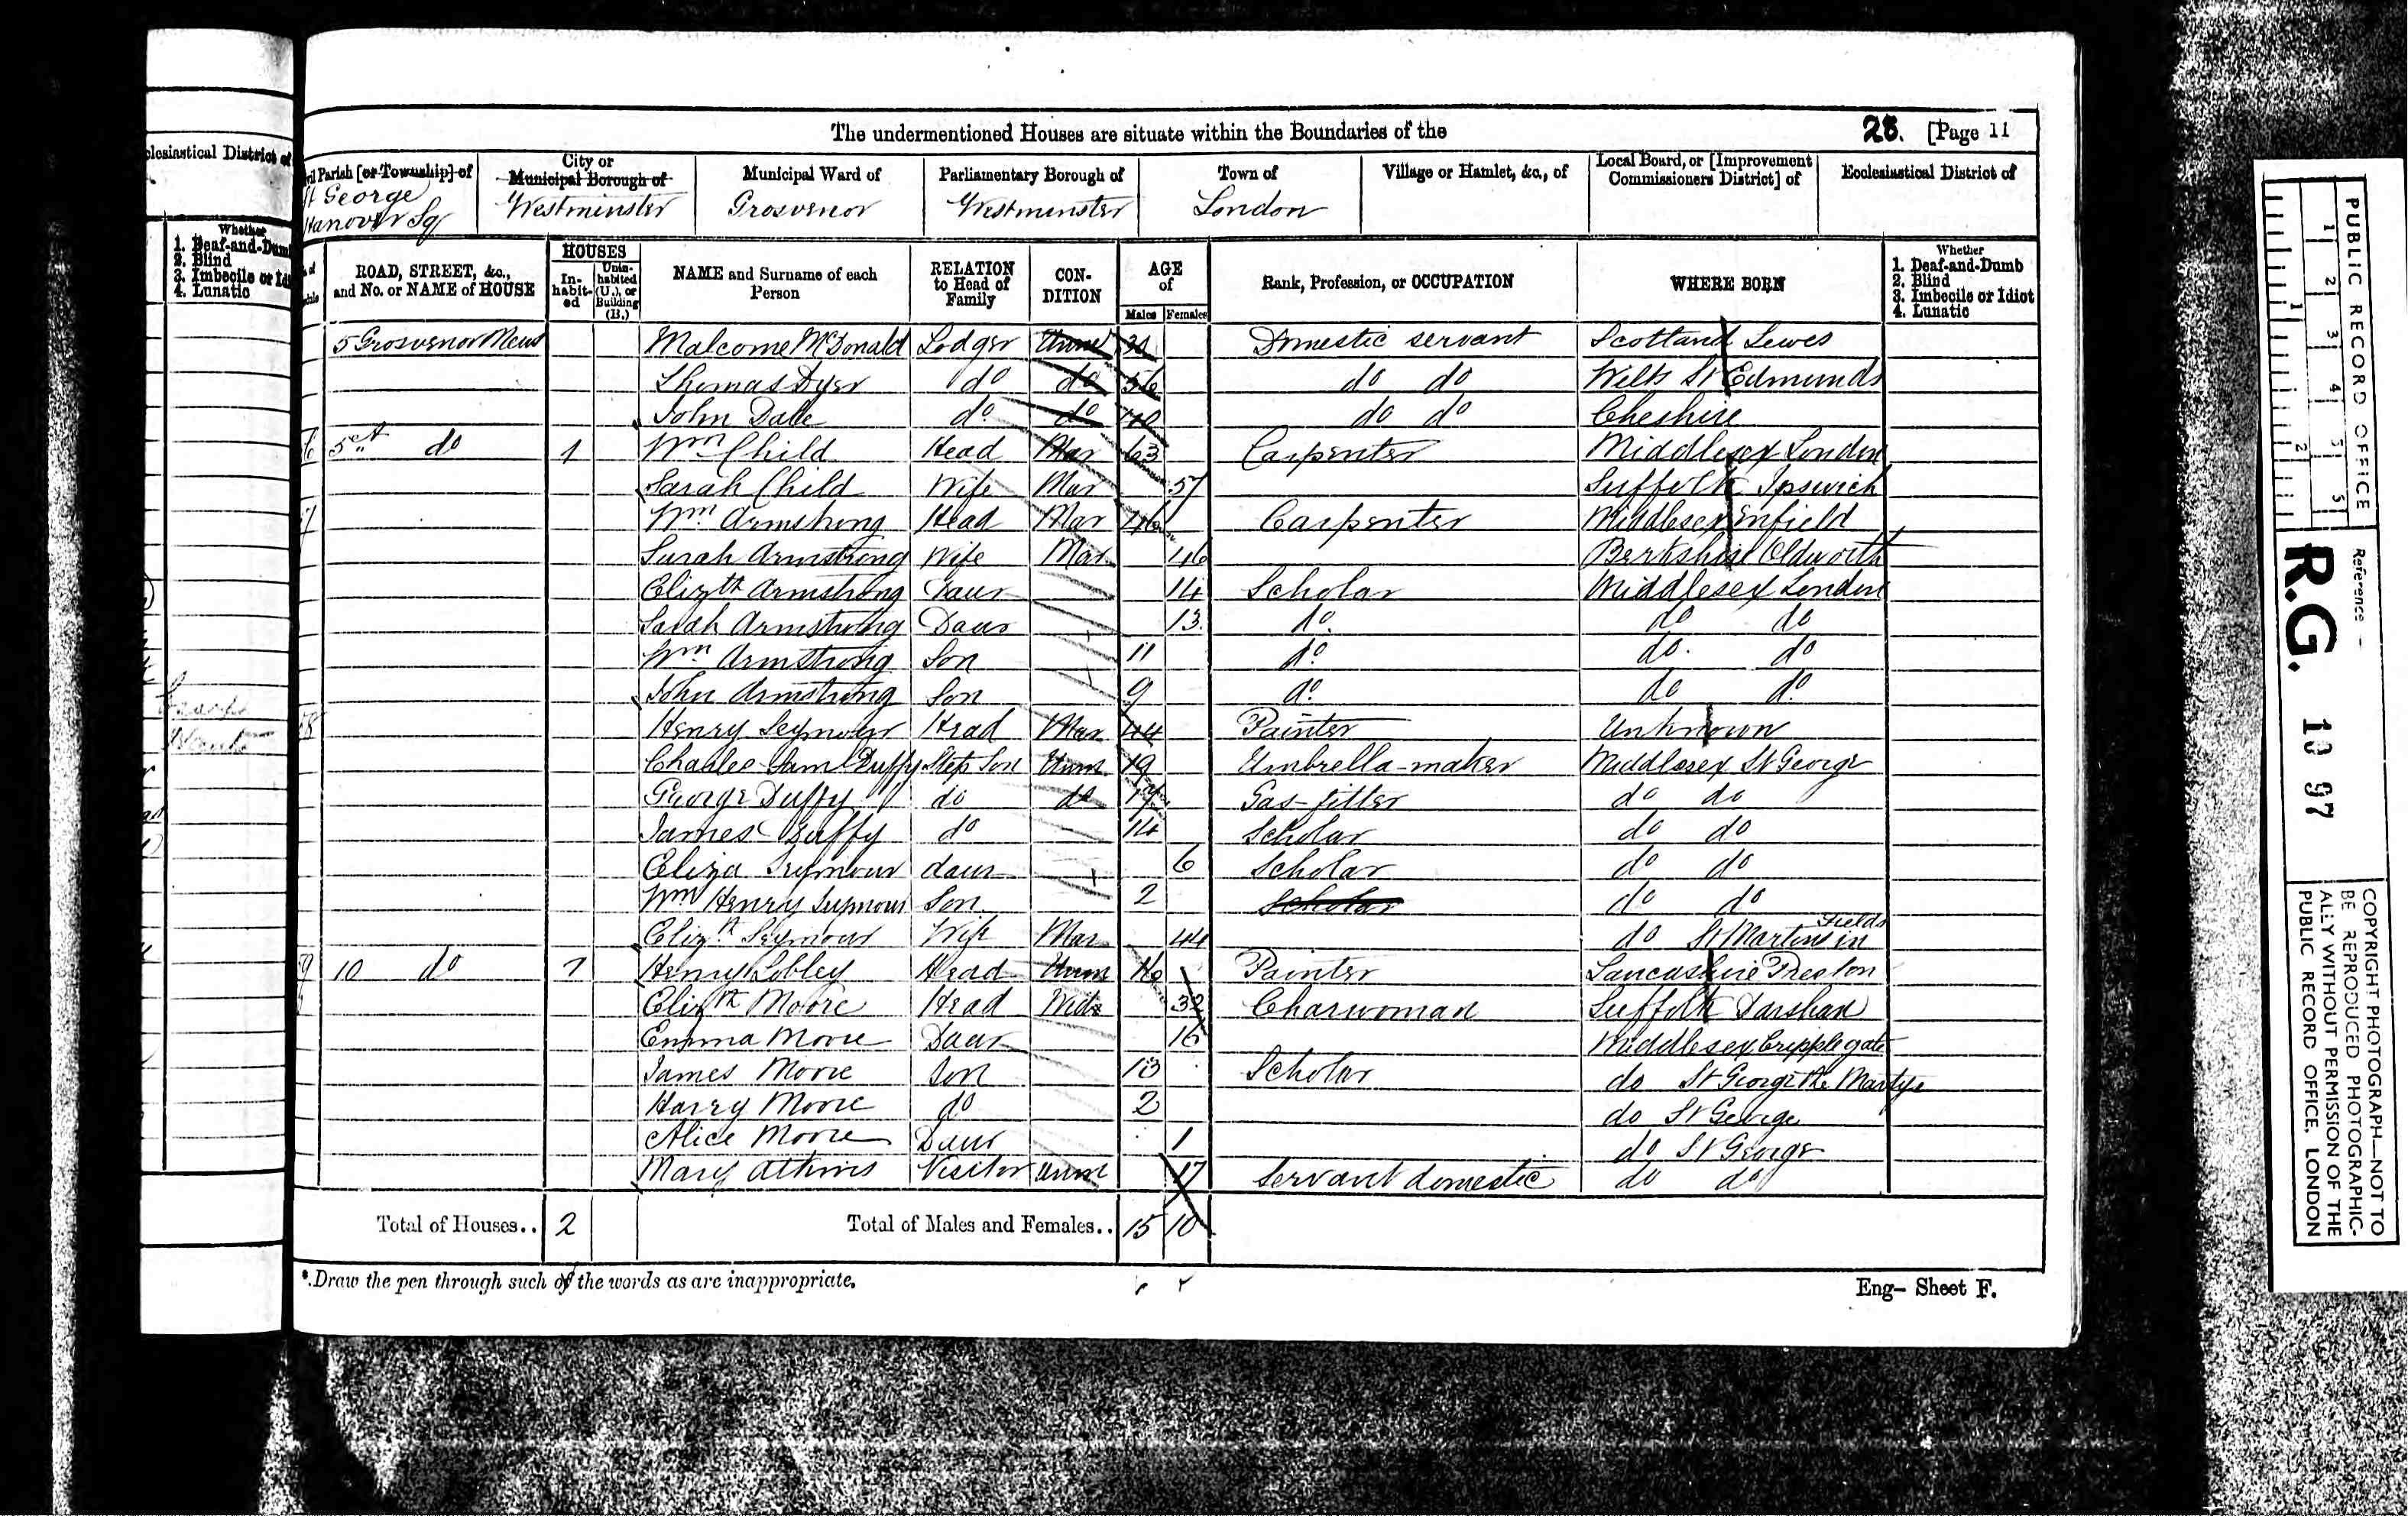 The undermentioned Houses are situate within the Boundaries of the 23. [Page 11
Parish [or Township] of City or Municipal Borough of Municipal Ward of Parliamentary Borough of Town of Village or Hamlet, &c., of Local Board, or [Improvement Commissioners District] of Ecclesiastical District of
St George Hanover Sq Westminster Grosvenor Westminster London
ROAD, STREET, &c., and No. or NAME of HOUSE HOUSES Inhabited Uninhabited (U.), or Building (B.) NAME and Surname of each Person RELATION to Head of Family CONDITION AGE of Males Females Rank, Profession, or OCCUPATION WHERE BORN Whether 1. Deaf-and-Dumb 2. Blind 3. Imbecile or Idiot 4. Lunatic
5 Grosvenor Mews Malcome McDonald Lodger Unmd Domestic servant Scotland Lewes
Thomas Dyer do do 56 do do Wilts St Edmunds
John Dale do do 40 do do Cheshire
5A do 1 Wm Child Head Mar 63 Carpenter Middlesex London
Sarah Child Wife Mar 57 Suffolk Ipswich
7 Wm Armstrong Head Mar 46 Carpenter Middlesex Enfield
Sarah Armstrong Wife Mar 46 Berkshire Oldworth
Elizth Armstrong Daur 14 Scholar Middlesex London
Sarah Armstrong Daur 13 do do do
Wm Armstrong Son 11 do do do
John Armstrong Son 9 do do do
8 Henry Seymour Head Mar 44 Painter Unknown
Charles Saml Duffy Step Son Unm 19 Umbrella-maker Middlesex St George
George Duffy do do 17 Gas-fitter do do
James Duffy do 14 Scholar do do
Eliza Seymour daur 6 Scholar do do
Wm Henry Seymour Son 2 Scholar do do
Elizth Seymour Wife Mar 44 do St Martins in Fields
9 10 do 1 Henry Lobley Head Unm Painter Lancashire Preston
Elizth Moore Head Wid 32 Charwoman Suffolk Darshan
Emma Moore Daur 16 Middlesex Cripplegate
James Moore Son 13 Scholar do St George the Martyr
Harry Moore do 2 do St George
Alice Moore Daur 1 do St George
Mary Atkins Visitor Unm 17 Servant domestic do do
Total of Houses.. 2 Total of Males and Females.. 15 10
*.Draw the pen through such of the words as are inappropriate.
Eng- Sheet F.
clesiastical District of
Whether
1. Deaf-and-Dumb
2. Blind
3. Imbecile or Idi
4. Lunatic
PUBLIC RECORD OFFICE
1 2 3 4 5
1 2
Reference -
R.G. 10 97
COPYRIGHT PHOTOGRAPH—NOT TO
BE REPRODUCED PHOTOGRAPHIC-
ALLY WITHOUT PERMISSION OF THE
PUBLIC RECORD OFFICE, LONDON